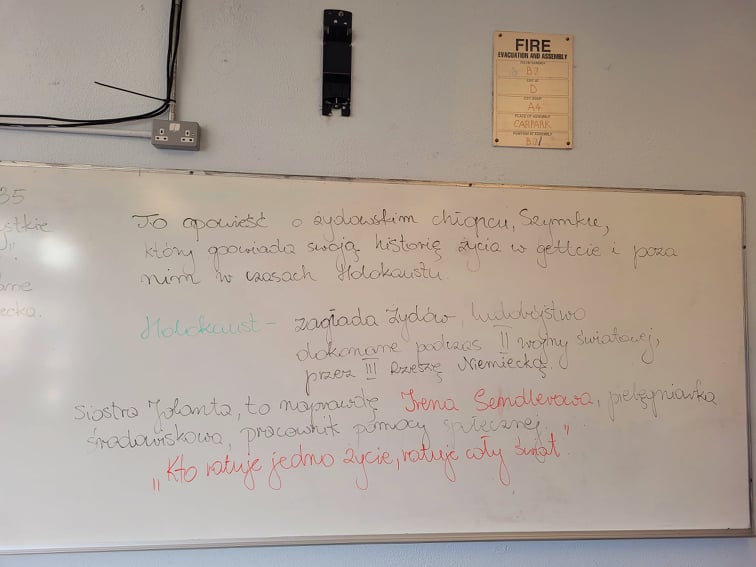 FIRE
EVACUATION AND ASSEMBLY
B7
EXIT AT
D
A4
PLACE OF ASSEMBLY
CARPARK
POSITION AT ASSEMBLY
35
To opowieść o żydowskim chłopcu, Szymku,
który opowiada swoją historię życia w gettcie i poza
nim w czasach Holokaustu.
Holokaust - zagłada Żydów, ludobójstwo
dokonane podczas II wojny światowej,
przez III Rzeszę Niemiecką.
Siostra Jolanta, to naprawdę Irena Sendlerowa, pielęgniarka
środowiskowa, pracownik pomocy społecznej.
"Kto ratuje jedno życie, ratuje cały świat"